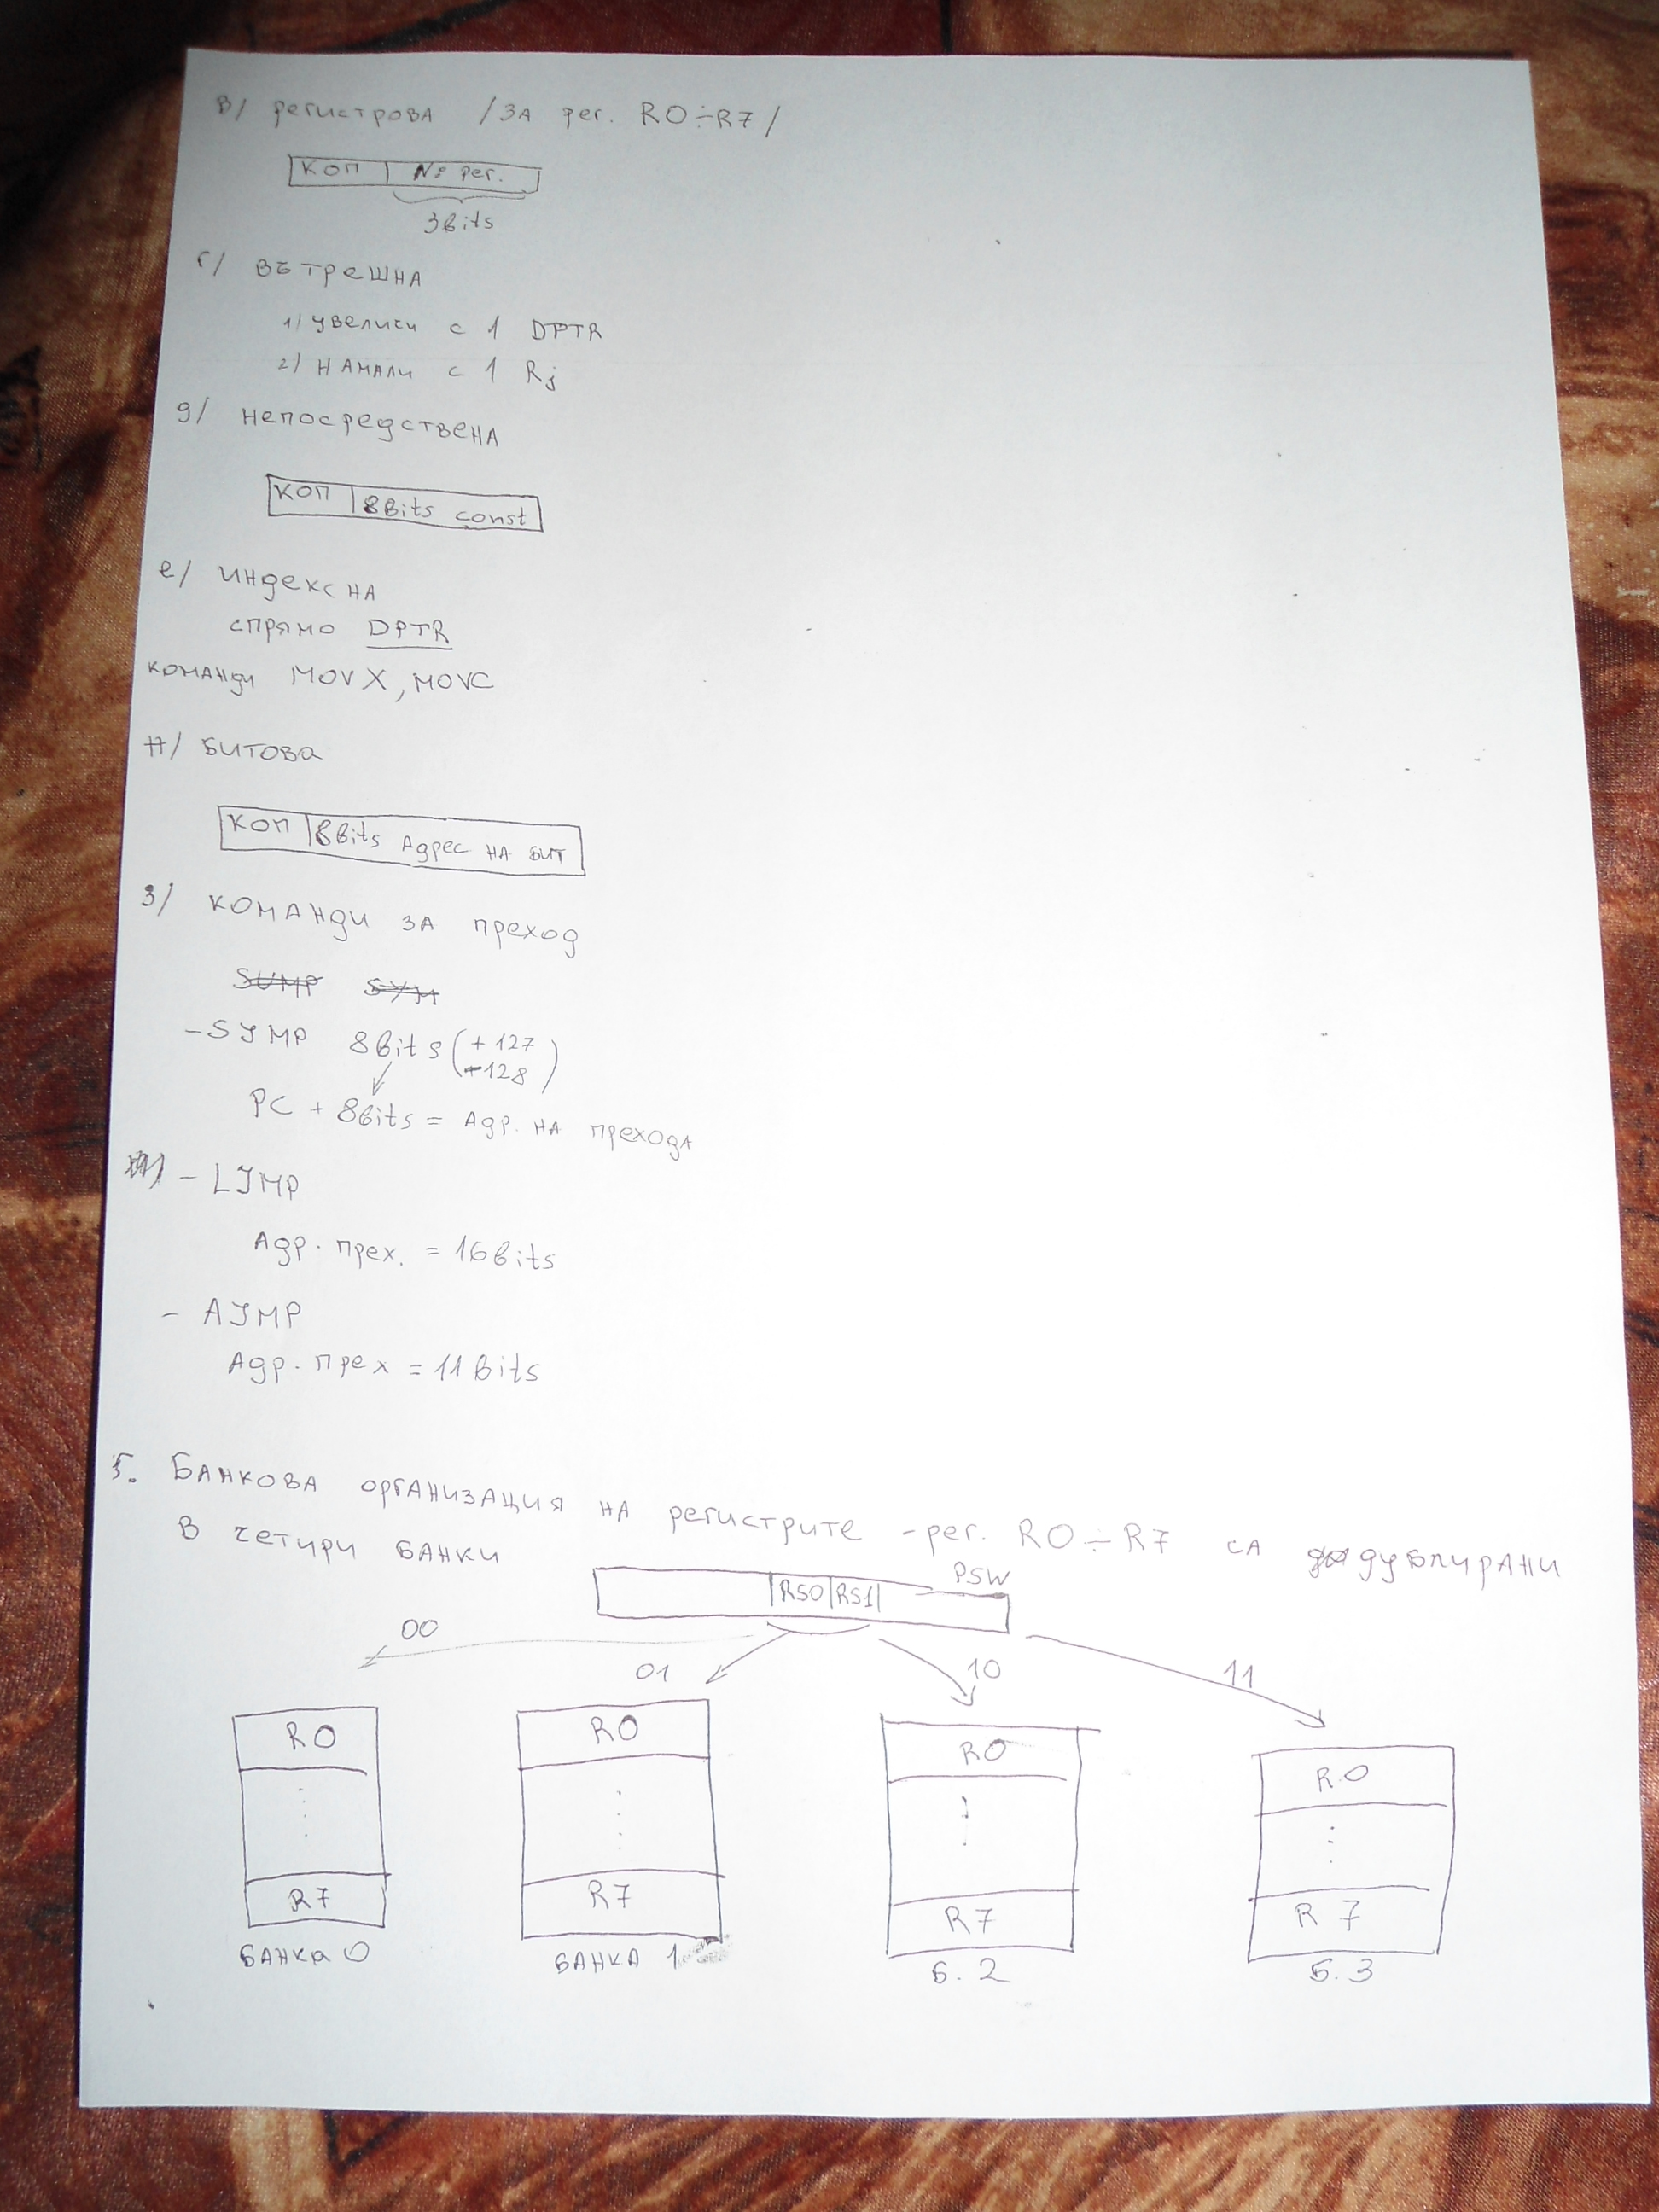 в/ регистрова /за рег. R0÷R7/
КОП № рег.
3bits
г/ вътрешна
1/ увеличи с 1 DPTR
2) намали с 1 Rj
д/ непосредствена
КОП 8bits const
е/ индексна
спрямо DPTR
команди MOVX, MOVC
ж/ битова
КОП 8bits Адрес на бит
з/ команди за преход
SUMP SYM
- SJMP 8bits (+127
-128)
PC + 8bits = Адр. на прехода
- LJMP
Адр. прех. = 16bits
- AJMP
Адр. прех = 11bits
5. Банкова организация на регистрите - рег. R0÷R7 са дублирани
в четири банки
PSW
RS0 RS1
00 01 10 11
R0 R0 R0 R0
R7 R7 R7 R7
Банка 0 Банка 1 Б. 2 Б. 3